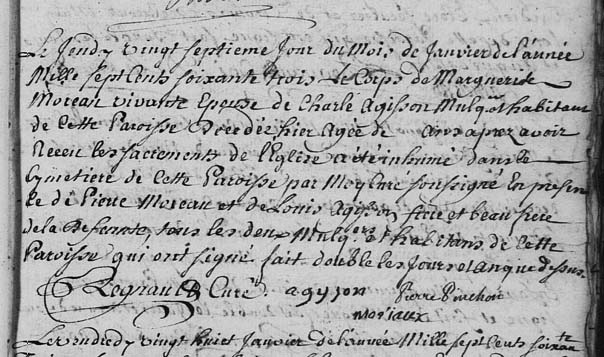 Le Jeudy vingt septieme Jour du Mois de Janvier de L'année
Mille sept Cents soixante trois Le Corps de Marguerite
Moreau vivante Epouse de Charle Agisson Mulqer et habitant
de Cette Paroisse Decedée hier Agée de ans aprez avoir
Receu les sacrements de l'Eglise a été inhumé dans le
Cymetiere de Cette Paroisse par Moy Curé soussigné En presen
ce de Pierre Moreau et de Louis Agisson frere et beau frere
de la Defunte, tous les deux Mulqers et habitans de Cette
Paroisse qui ont signé fait double les Jours et an que dessus
Regnauld Curé agisson Pierre
moriaux
Le vendredy vingt huict Janvier de L'année Mille sept Cents soixante